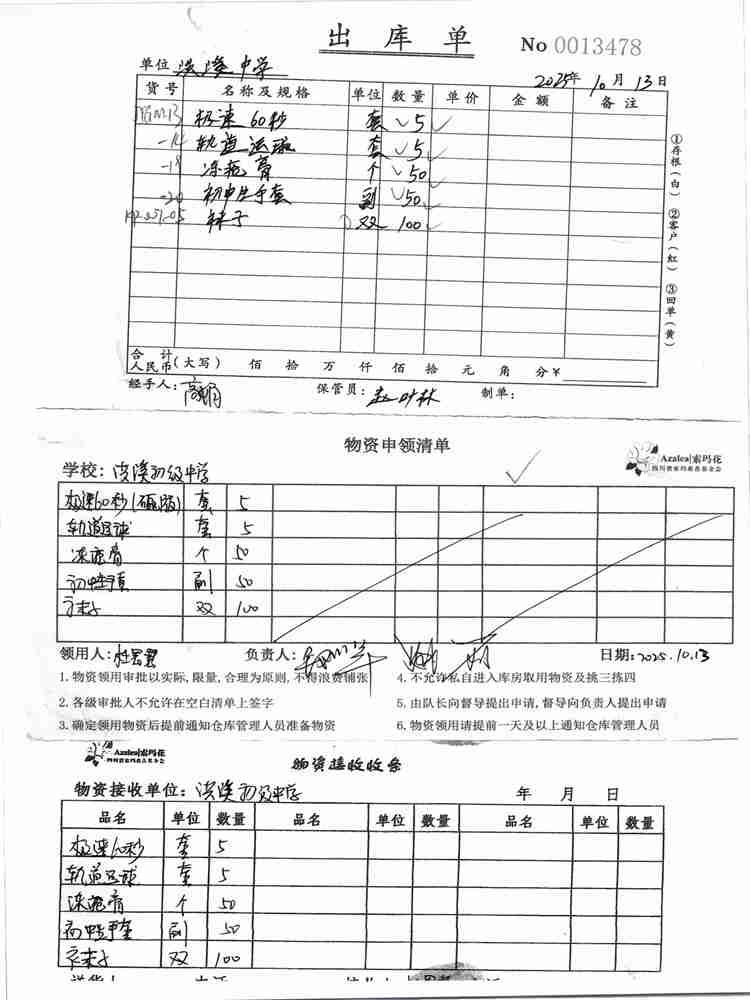 出库单
No 0013478
单位 洪溪中学
2025年10月13日
货号 名称及规格 单位 数量 单价 金额 备注
极速60秒 套 5
-14 轨道足球 套 5
-18 冻疮膏 个 50
-20 初中生手套 副 50
袜子 双 100
①存根(白) ②客户(红) ③回单(黄)
合计人民币(大写) 佰 拾 万 仟 佰 拾 元 角 分¥
经手人: 保管员: 制单:
物资申领清单
Azalea|索玛花
四川省索玛慈善基金会
学校: 洪溪初级中学
极速60秒 套 5
轨道足球 套 5
冻疮膏 个 50
初中生手套 副 50
袜子 双 100
领用人: 负责人: 日期: 2025.10.13
1.物资领用审批以实际,限量,合理为原则,不得浪费铺张
4.不允许私自进入库房取用物资及挑三拣四
2.各级审批人不允许在空白清单上签字
5.由队长向督导提出申请,督导向负责人提出申请
3.确定领用物资后提前通知仓库管理人员准备物资
6.物资领用请提前一天及以上通知仓库管理人员
Azalea|索玛花
四川省索玛慈善基金会
物资接收收条
物资接收单位: 洪溪初级中学 年 月 日
品名 单位 数量 品名 单位 数量 品名 单位 数量
极速60秒 套 5
轨道足球 套 5
冻疮膏 个 50
初中生手套 副 50
袜子 双 100